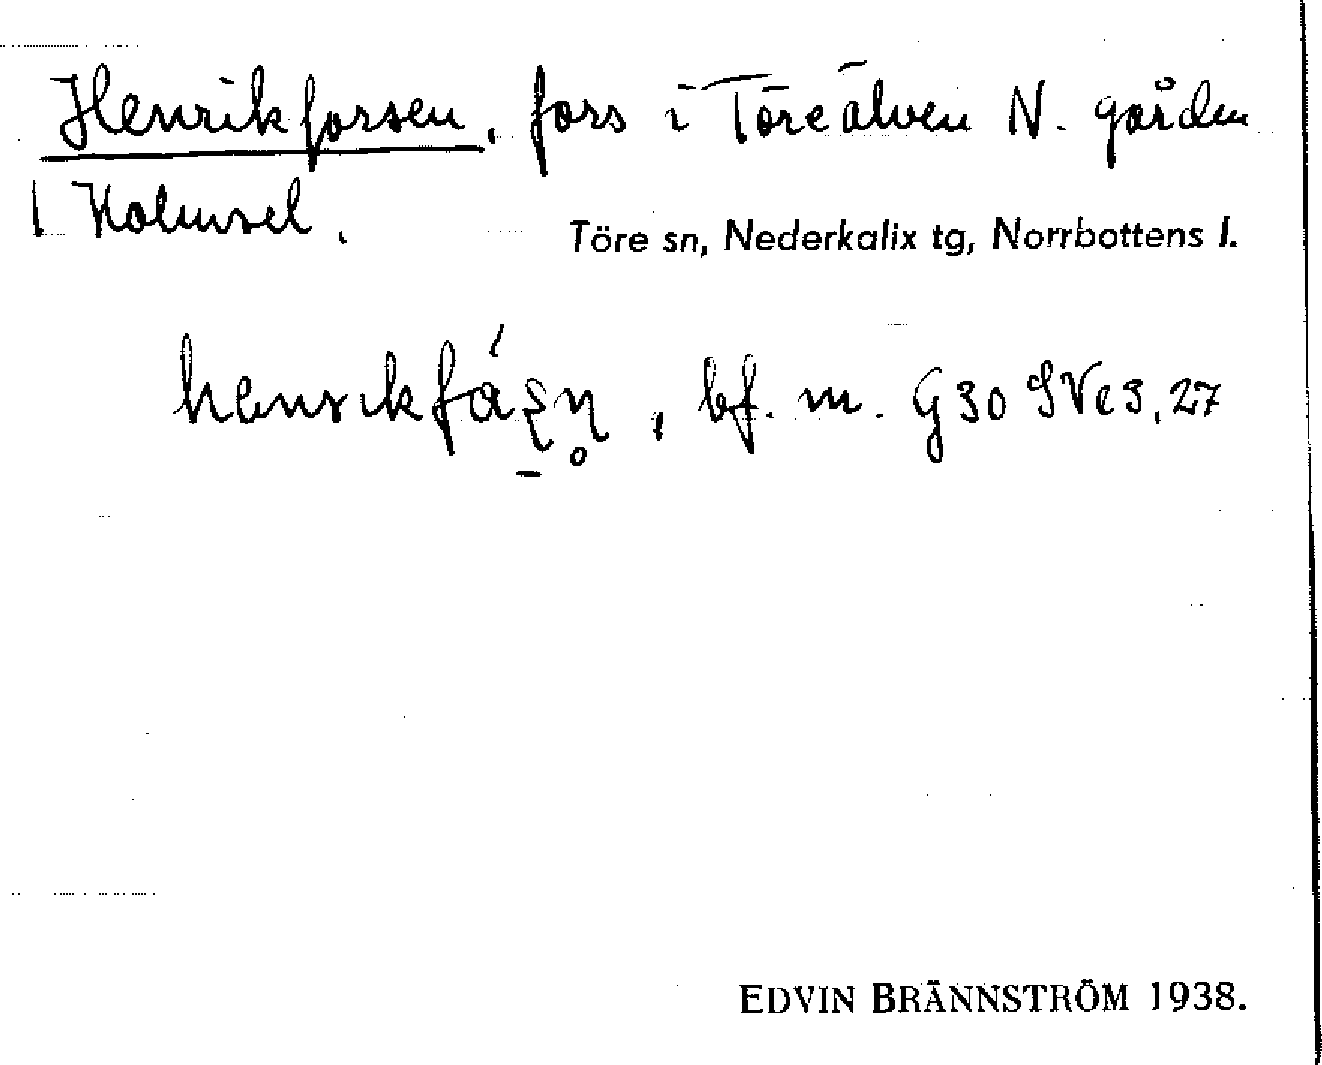 Henrikforsen, fors i Töreälven N. gården
1 Holmsel.
Töre sn, Nederkalix tg, Norrbottens l.
bf. m. G30 SVe3,27
EDVIN BRÄNNSTRÖM 1938.